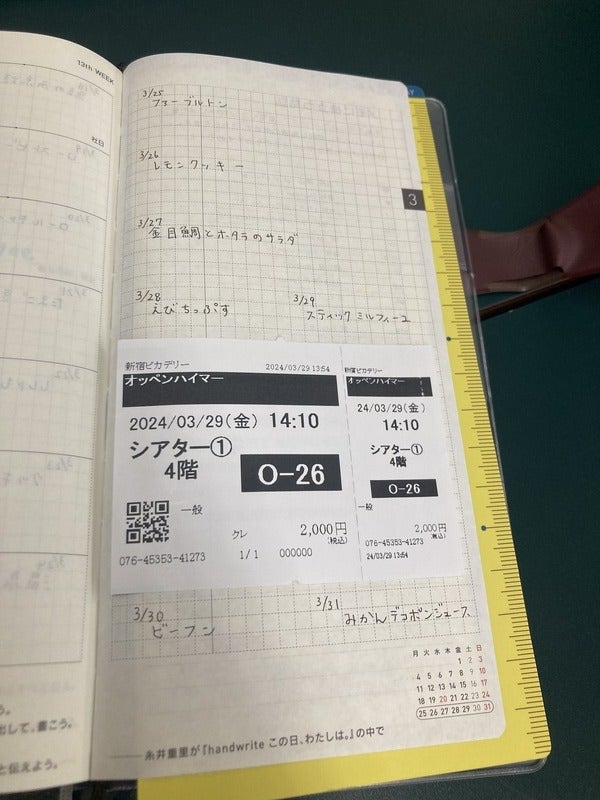 13th WEEK
3/25
ファーブルトン
3/26
レモンクッキー
3
3/27
金目鯛とホタテのサラダ
3/28
えびちっぷす
3/29
スティックミルフィーユ
新宿ピカデリー
2024/03/29 13:54
オッペンハイマー
2024/03/29(金) 14:10
シアター①
4階
O-26
一般
クレ
2,000円
(税込)
076-45353-41273
1/1
000000
新宿ピカデリー
オッペンハイマー
24/03/29(金)
14:10
シアター①
4階
O-26
一般
2,000円
(税込)
076-45353-41273
24/03/29 13:54
3/30
ビーフン
3/31
みかんデコポンジュース
月 火 水 木 金 土 日
1 2 3
4 5 6 7 8 9 10
11 12 13 14 15 16 17
18 19 20 21 22 23 24
25 26 27 28 29 30 31
糸井重里が『handwrite この日、わたしは。』の中で
う。
出して、書こう。
と伝えよう。